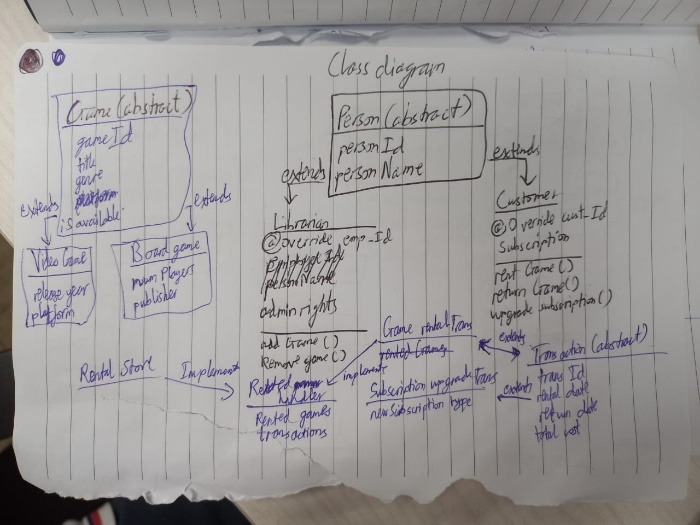 Class diagram
Game (abstract)
game Id
title
genre
platform
is available
extends
extends
Video Game
release year
platform
Board game
num Players
publisher
Person (abstract)
person Id
person Name
extends
extends
Librarian
@Override emp-Id
employee Id
person Name
admin rights
add Game ()
Remove game ()
Customer
@Override cust-Id
Subscription
rent Game ()
return Game ()
upgrade subscription ()
Rental Store
Implement
Rented
handler
Rented games
transactions
implements
Game rental Trans
rented Games
Subscription upgrade Trans
new Subscription type
extends
extends
Transaction (abstract)
trans Id
rental date
return date
total cost